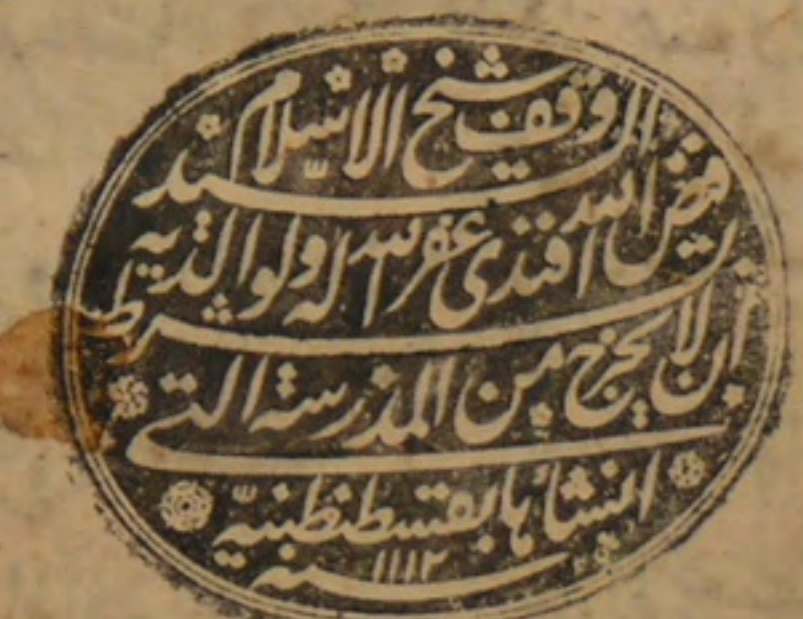 وقف شيخ الاسلام السيد
فيض الله افندى غفر الله له ولوالديه بشرط
أن لا يخرج من المدرسة التى
انشأها بقسطنطينيّة
سنه ١١١٢